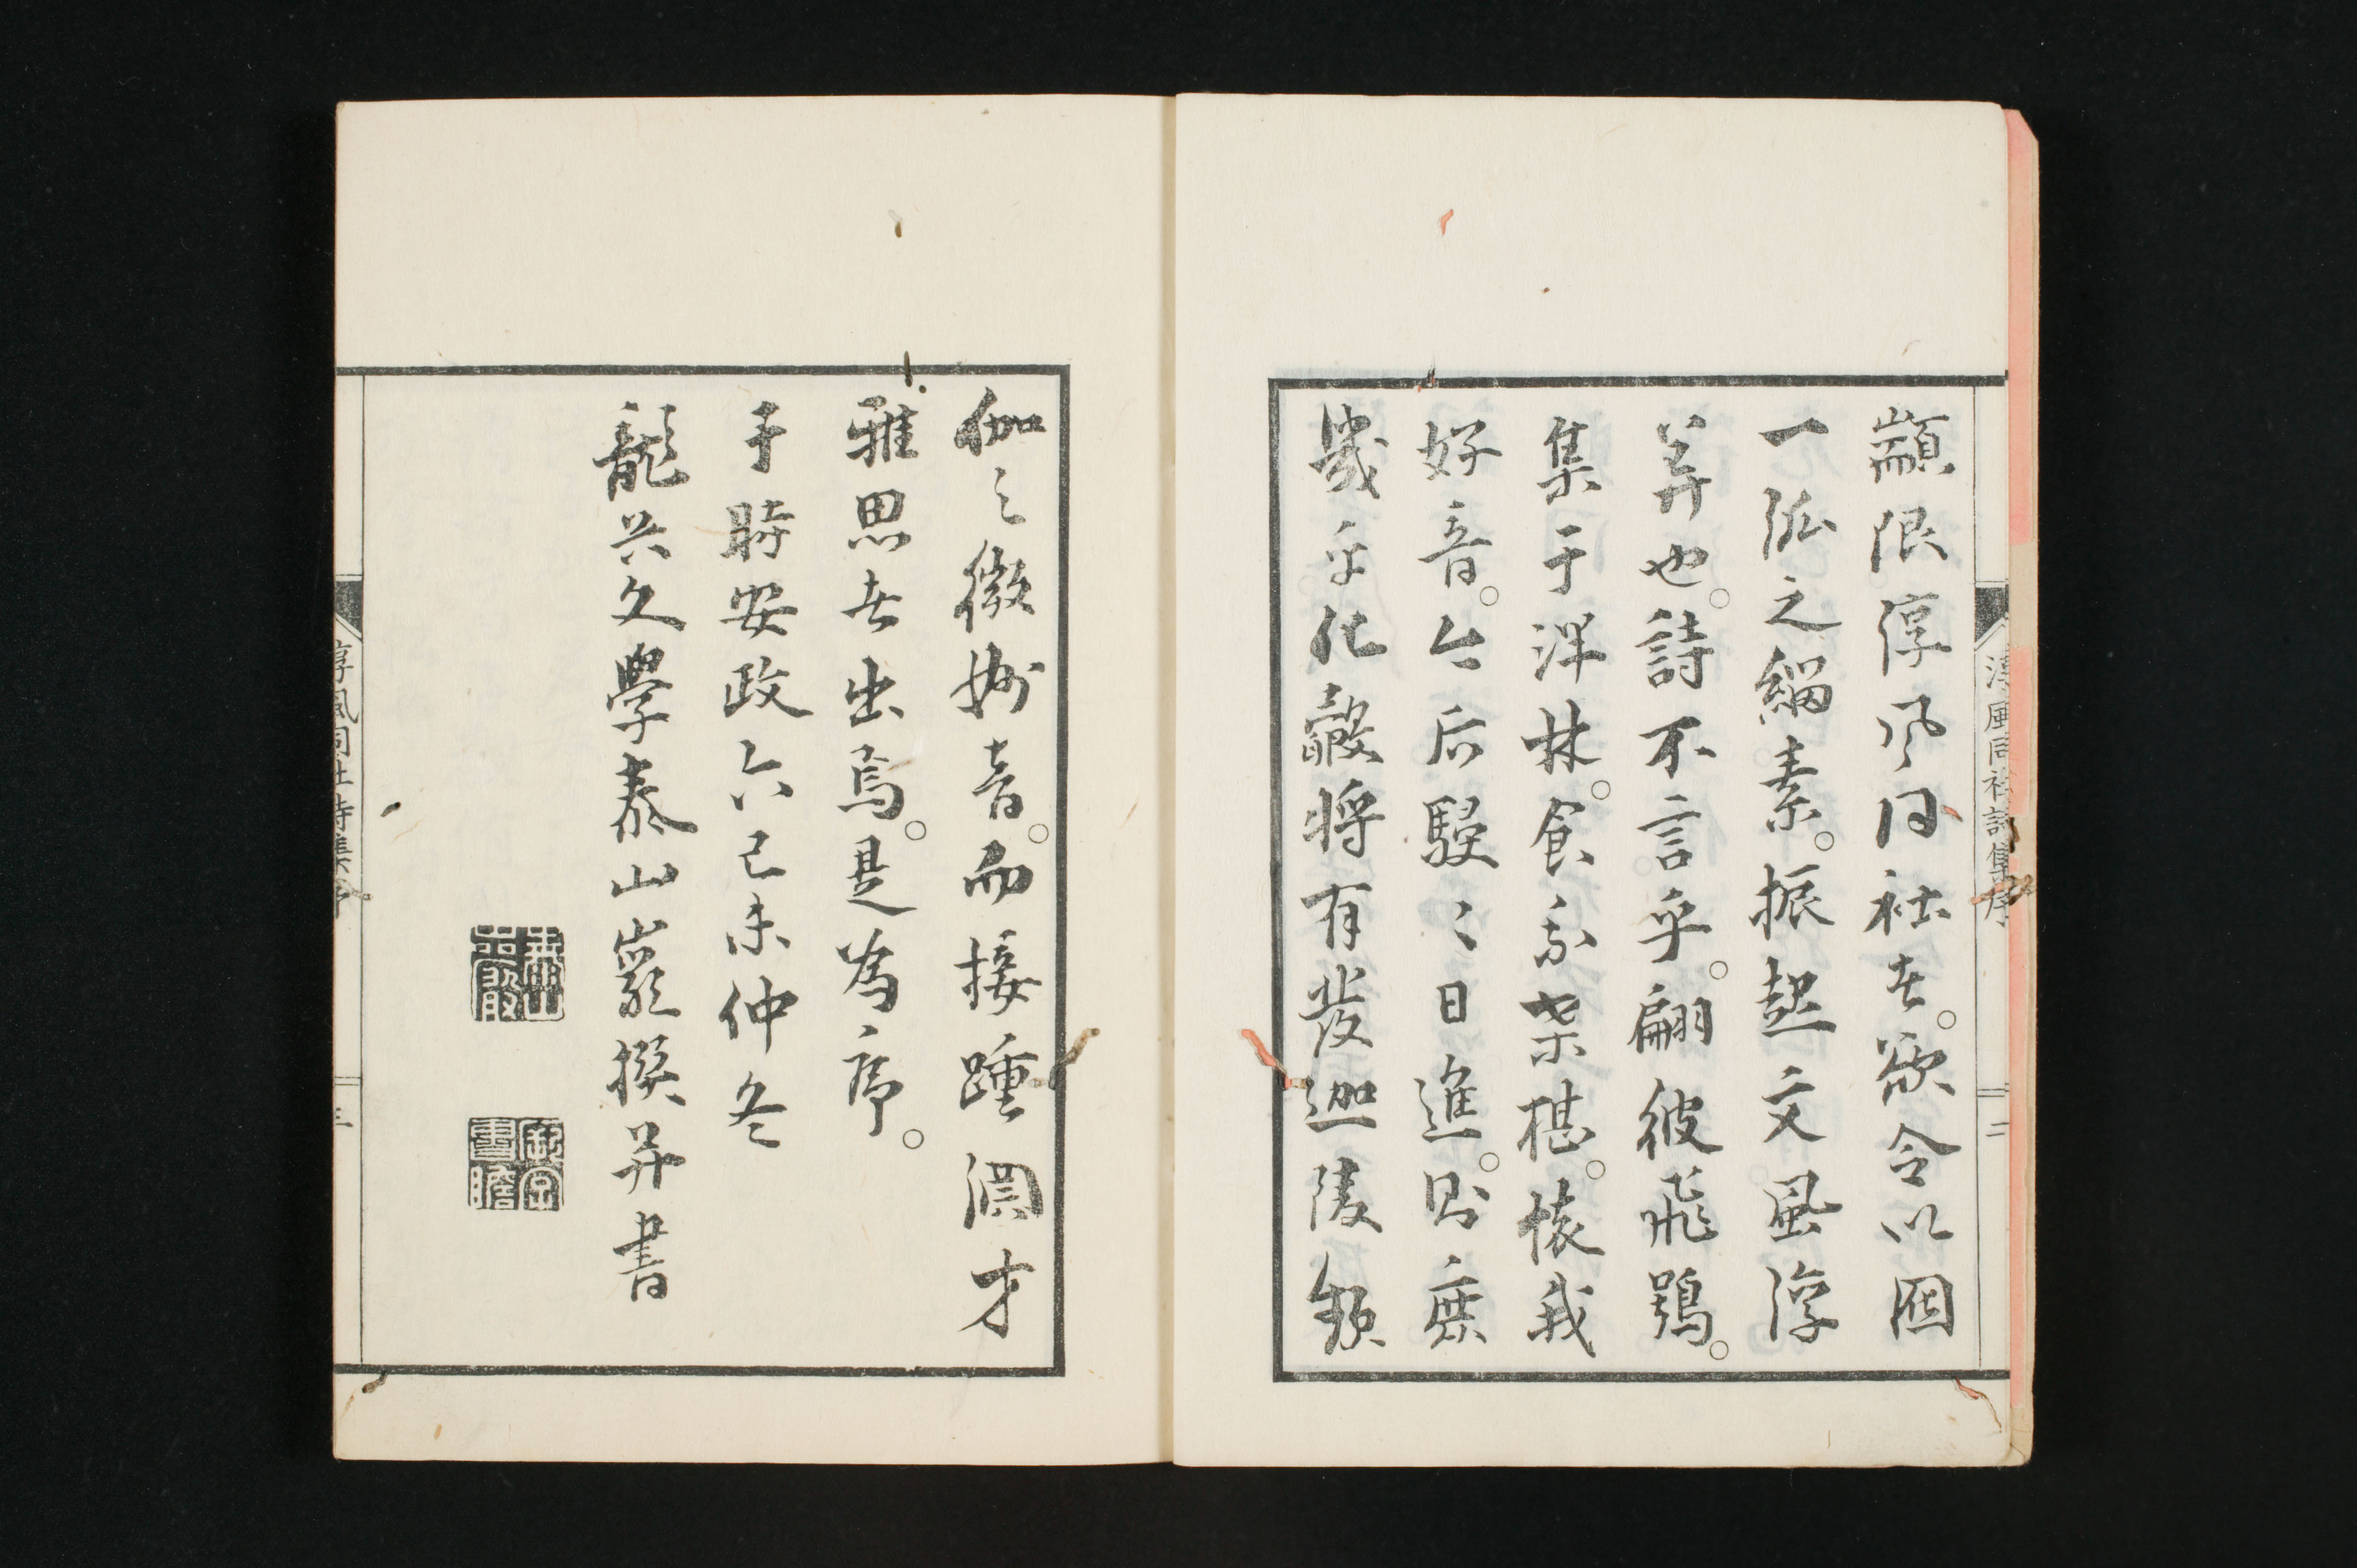 淳風同社詩集序
二
顓限淳风同社者。欲令以國
一派之緇素。振起文風淳
美也。詩不言乎。翩彼飛鴞。
集于泮林。食我桑椹。懷我
好音。今后駸〻日進。則庶
幾乎化鷇將有發迦陵頻
伽之微妙音。而接踵淵才
雅思者出焉。是為序。
于時安政六己未仲冬
龍兴文學泰山巖撰并書
淳風同社詩集序
三